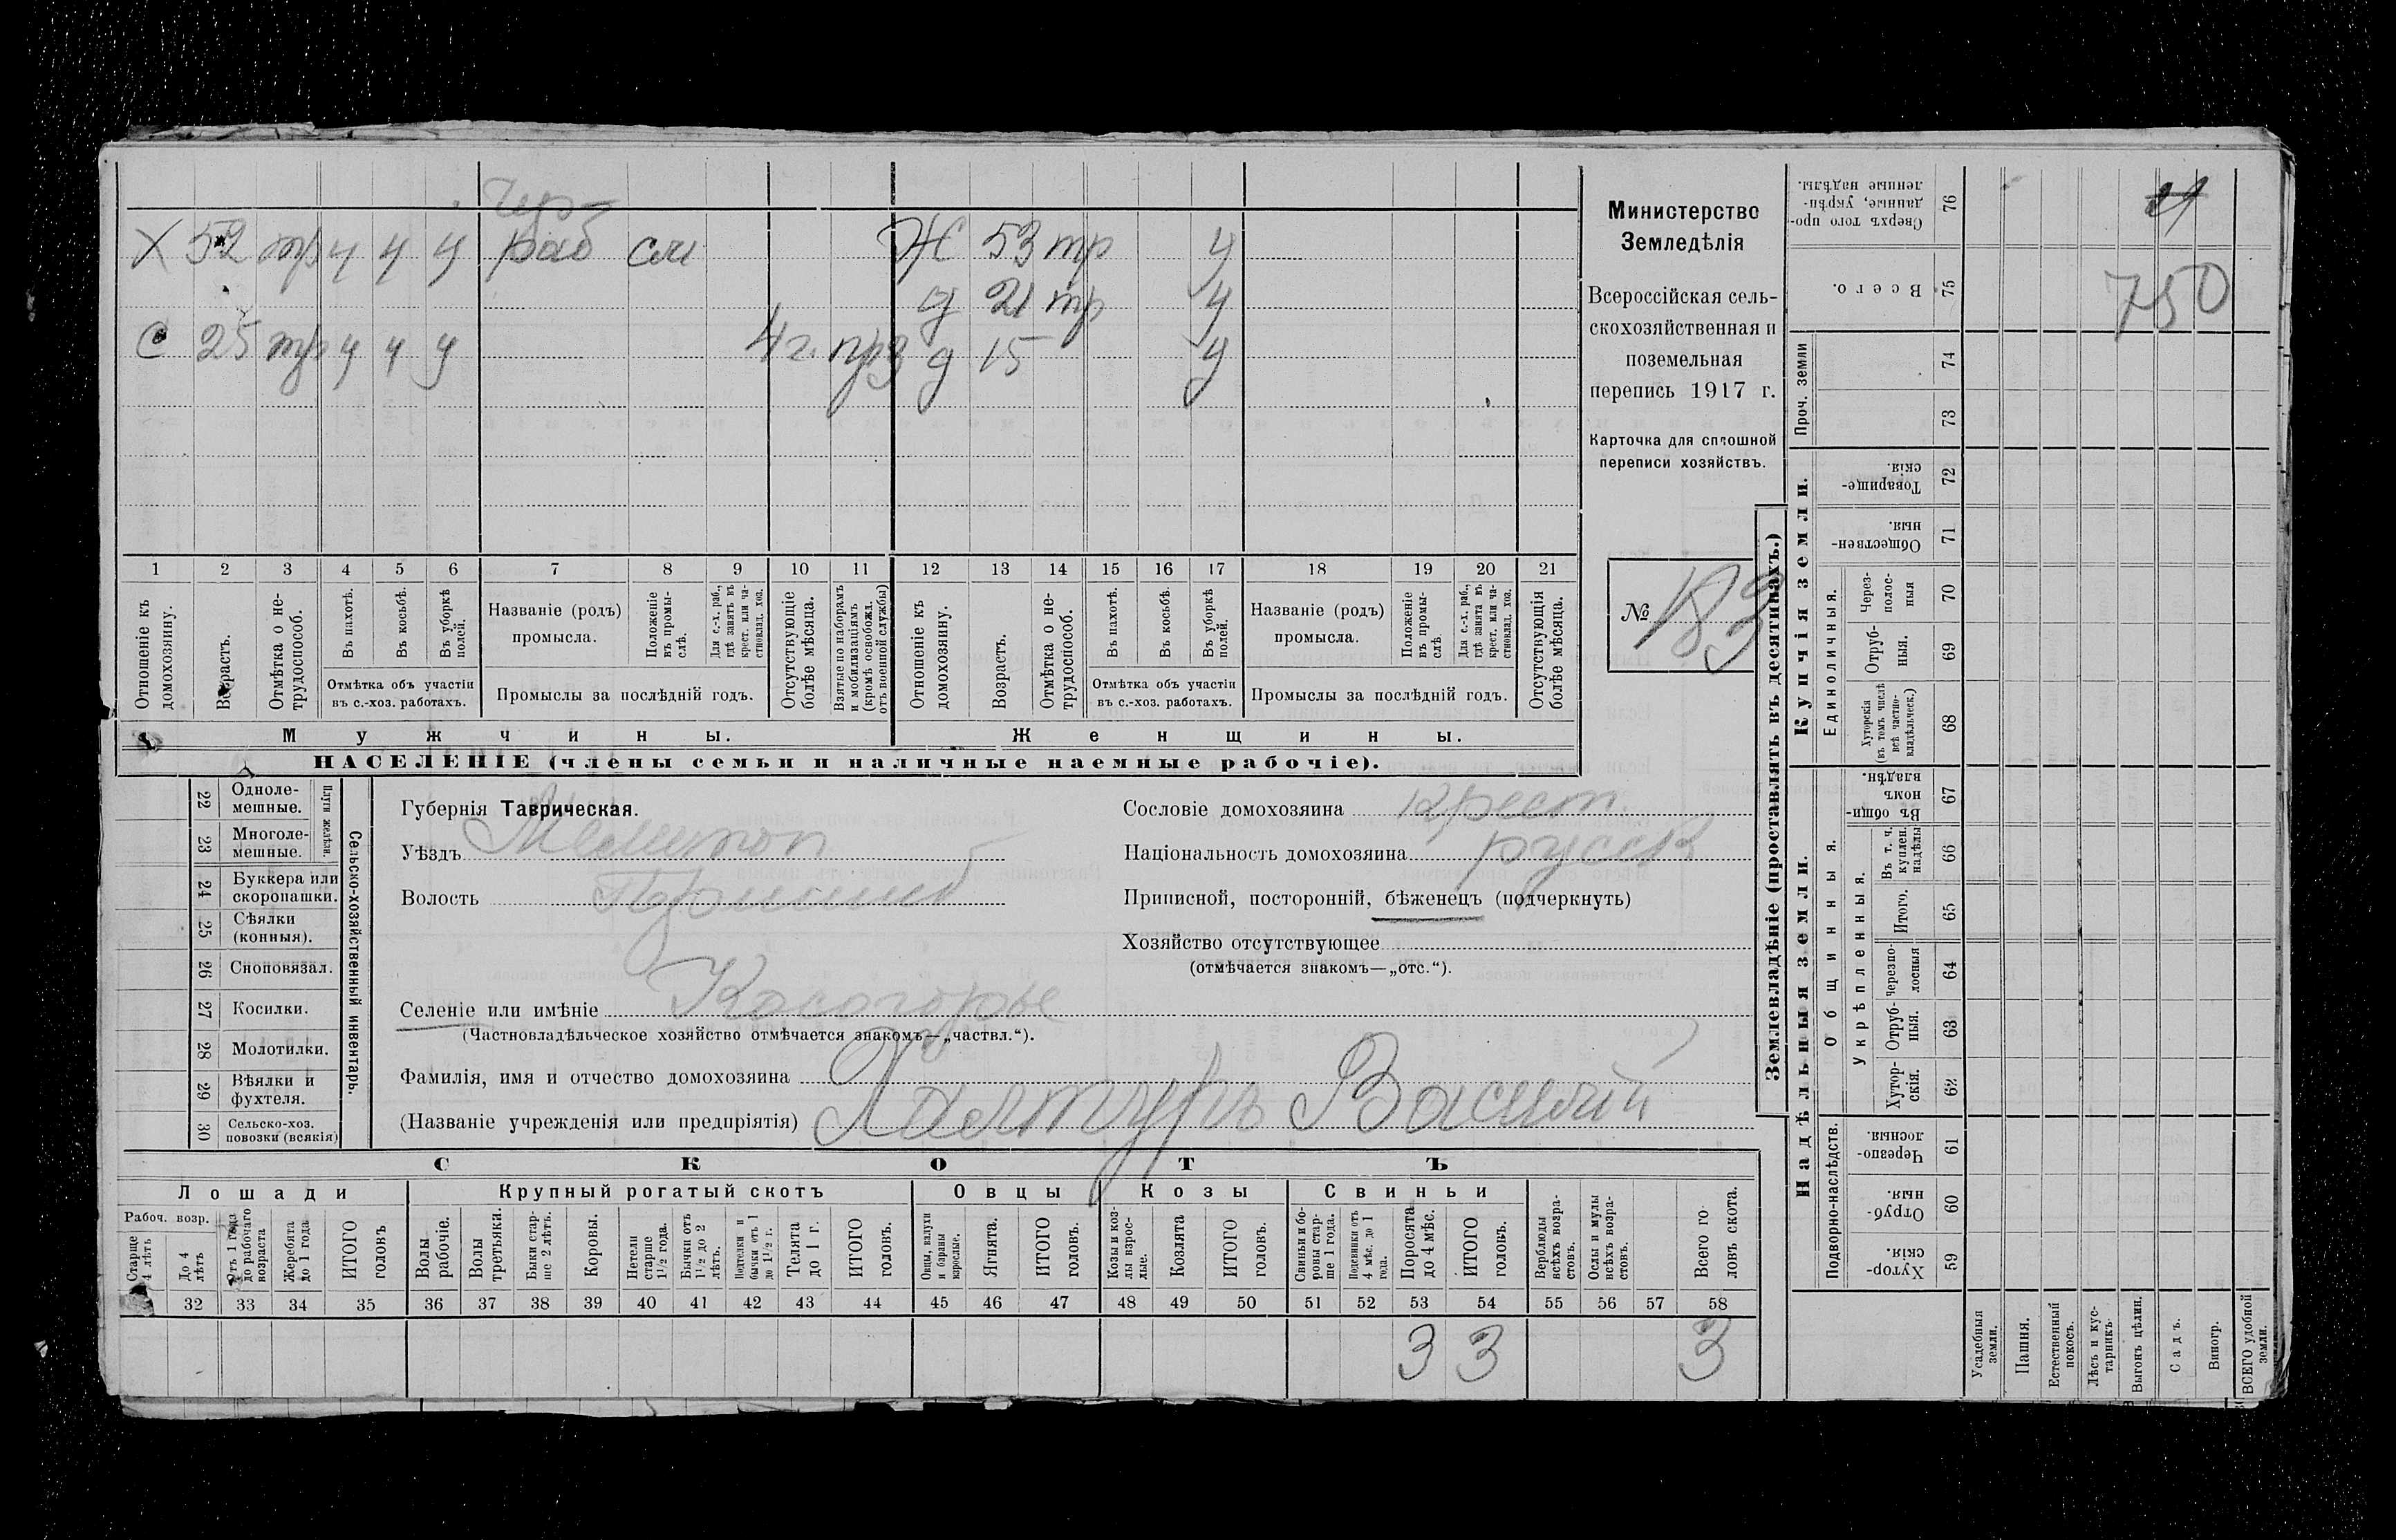 Чер-
Х 52 тр у у у раб сш Ж 53 тр у
д 21 тр у
С 25 тр у у у 4 г. прз д 15 у
1 2 3 4 5 6 7 8 9 10 11 12 13 14 15 16 17 18 19 20 21
Отношеніе къ домохозяину.
Возрастъ.
Отмѣтка о нетрудоспособ.
Въ пахотѣ.
Въ косьбѣ.
Въ уборкѣ полей.
Отмѣтка объ участіи въ с.-хоз. работахъ.
Названіе (родъ) промысла.
Положеніе въ промыслѣ.
Для с.-х. раб., гдѣ занятъ въ крест. или частновлад. хоз.
Промыслы за послѣдній годъ.
Отсутствующіе болѣе мѣсяца.
Взятые по наборамъ и мобилизаціямъ (кромѣ освобожд. отъ военной службы)
Отношеніе къ домохозяину.
Возрастъ.
Отмѣтка о нетрудоспособ.
Въ пахотѣ.
Въ косьбѣ.
Въ уборкѣ полей.
Отмѣтка объ участіи въ с.-хоз. работахъ.
Названіе (родъ) промысла.
Положеніе въ промыслѣ.
Для с.-х. раб., гдѣ занята въ крест. или частновлад. хоз.
Промыслы за послѣдній годъ.
Отсутствующія болѣе мѣсяца.
Мужчины.
Женщины.
НАСЕЛЕНІЕ (члены семьи и наличные наемные рабочіе).
Министерство
Земледѣлія
Всероссійская сель-
скохозяйственная и
поземельная
перепись 1917 г.
Карточка для сплошной
переписи хозяйствъ.
№ 183
22 Одноле-
мешные.
23 Многоле-
мешные.
Плуги желѣзн.
24 Буккера или
скоропашки.
25 Сѣялки
(конныя).
26 Сноповязал.
27 Косилки.
28 Молотилки.
29 Вѣялки и
фухтеля.
30 Сельско-хоз.
повозки (всякія)
Сельско-хозяйственный инвентарь.
Губернія Таврическая.
Уѣздъ Мелитоп
Волость Пришиб
Селеніе или имѣніе Косогорье
(Частновладѣльческое хозяйство отмѣчается знакомъ—„частвл.“).
Фамилія, имя и отчество домохозяина
(Названіе учрежденія или предпріятія) Халтуръ Василій
Сословіе домохозяина крест.
Національность домохозяина русск
Приписной, посторонній, бѣженецъ (подчеркнуть)
Хозяйство отсутствующее
(отмѣчается знакомъ—„отс.“).
СКОТЪ
Лошади
Крупный рогатый скотъ
Овцы
Козы
Свиньи
Рабоч. возр.
Старше 4 лѣтъ
До 4 лѣтъ
Отъ 1 года до рабочаго возраста
Жеребята до 1 года
ИТОГО головъ
Волы рабочіе.
Волы третьяки.
Быки старше 2 лѣтъ.
Коровы.
Нетели старше 1½ года.
Бычки отъ 1½ до 2 лѣтъ.
Подтелки и бычки отъ 1 до 1½ г.
Телята до 1 г.
ИТОГО головъ.
Овцы, валухи и бараны взрослые.
Ягнята.
ИТОГО головъ.
Козы и козлы взрослые.
Козлята
ИТОГО головъ.
Свиньи и боровы старше 1 года.
Подсвинки отъ 4 мѣс. до 1 года.
Поросята до 4 мѣс.
ИТОГО головъ.
Верблюды всѣхъ возрастовъ.
Ослы и мулы всѣхъ возрастовъ.
Всего головъ скота.
32 33 34 35 36 37 38 39 40 41 42 43 44 45 46 47 48 49 50 51 52 53 54 55 56 57 58
3 3 3
Землевладѣніе (проставлять въ десятинахъ.)
Надѣльныя земли.
Купчія земли.
Проч. земли
Подворно-наслѣдств.
Общинныя.
Укрѣпленныя.
Единоличныя.
Сверхъ того проданные, укрѣпленные надѣлы. 76
Всего. 75
74
73
Товарищескія. 72
Общественныя. 71
Черезполосныя 70
Отрубныя. 69
Хуторскія (въ томъ числѣ всѣ частновладѣльческ.) 68
Въ общиномъ владѣн. 67
Въ т. ч. куплен. надѣлы 66
Итого. 65
Черезполосныя 64
Отрубныя. 63
Хуторскія. 62
Черезполосныя. 61
Отрубныя. 60
Хуторскія. 59
750
Усадебныя земли.
Пашня.
Естественный покосъ.
Лѣсъ и кустарникъ.
Выгонъ цѣлин.
Садъ.
Виногр.
ВСЕГО удобной земли.